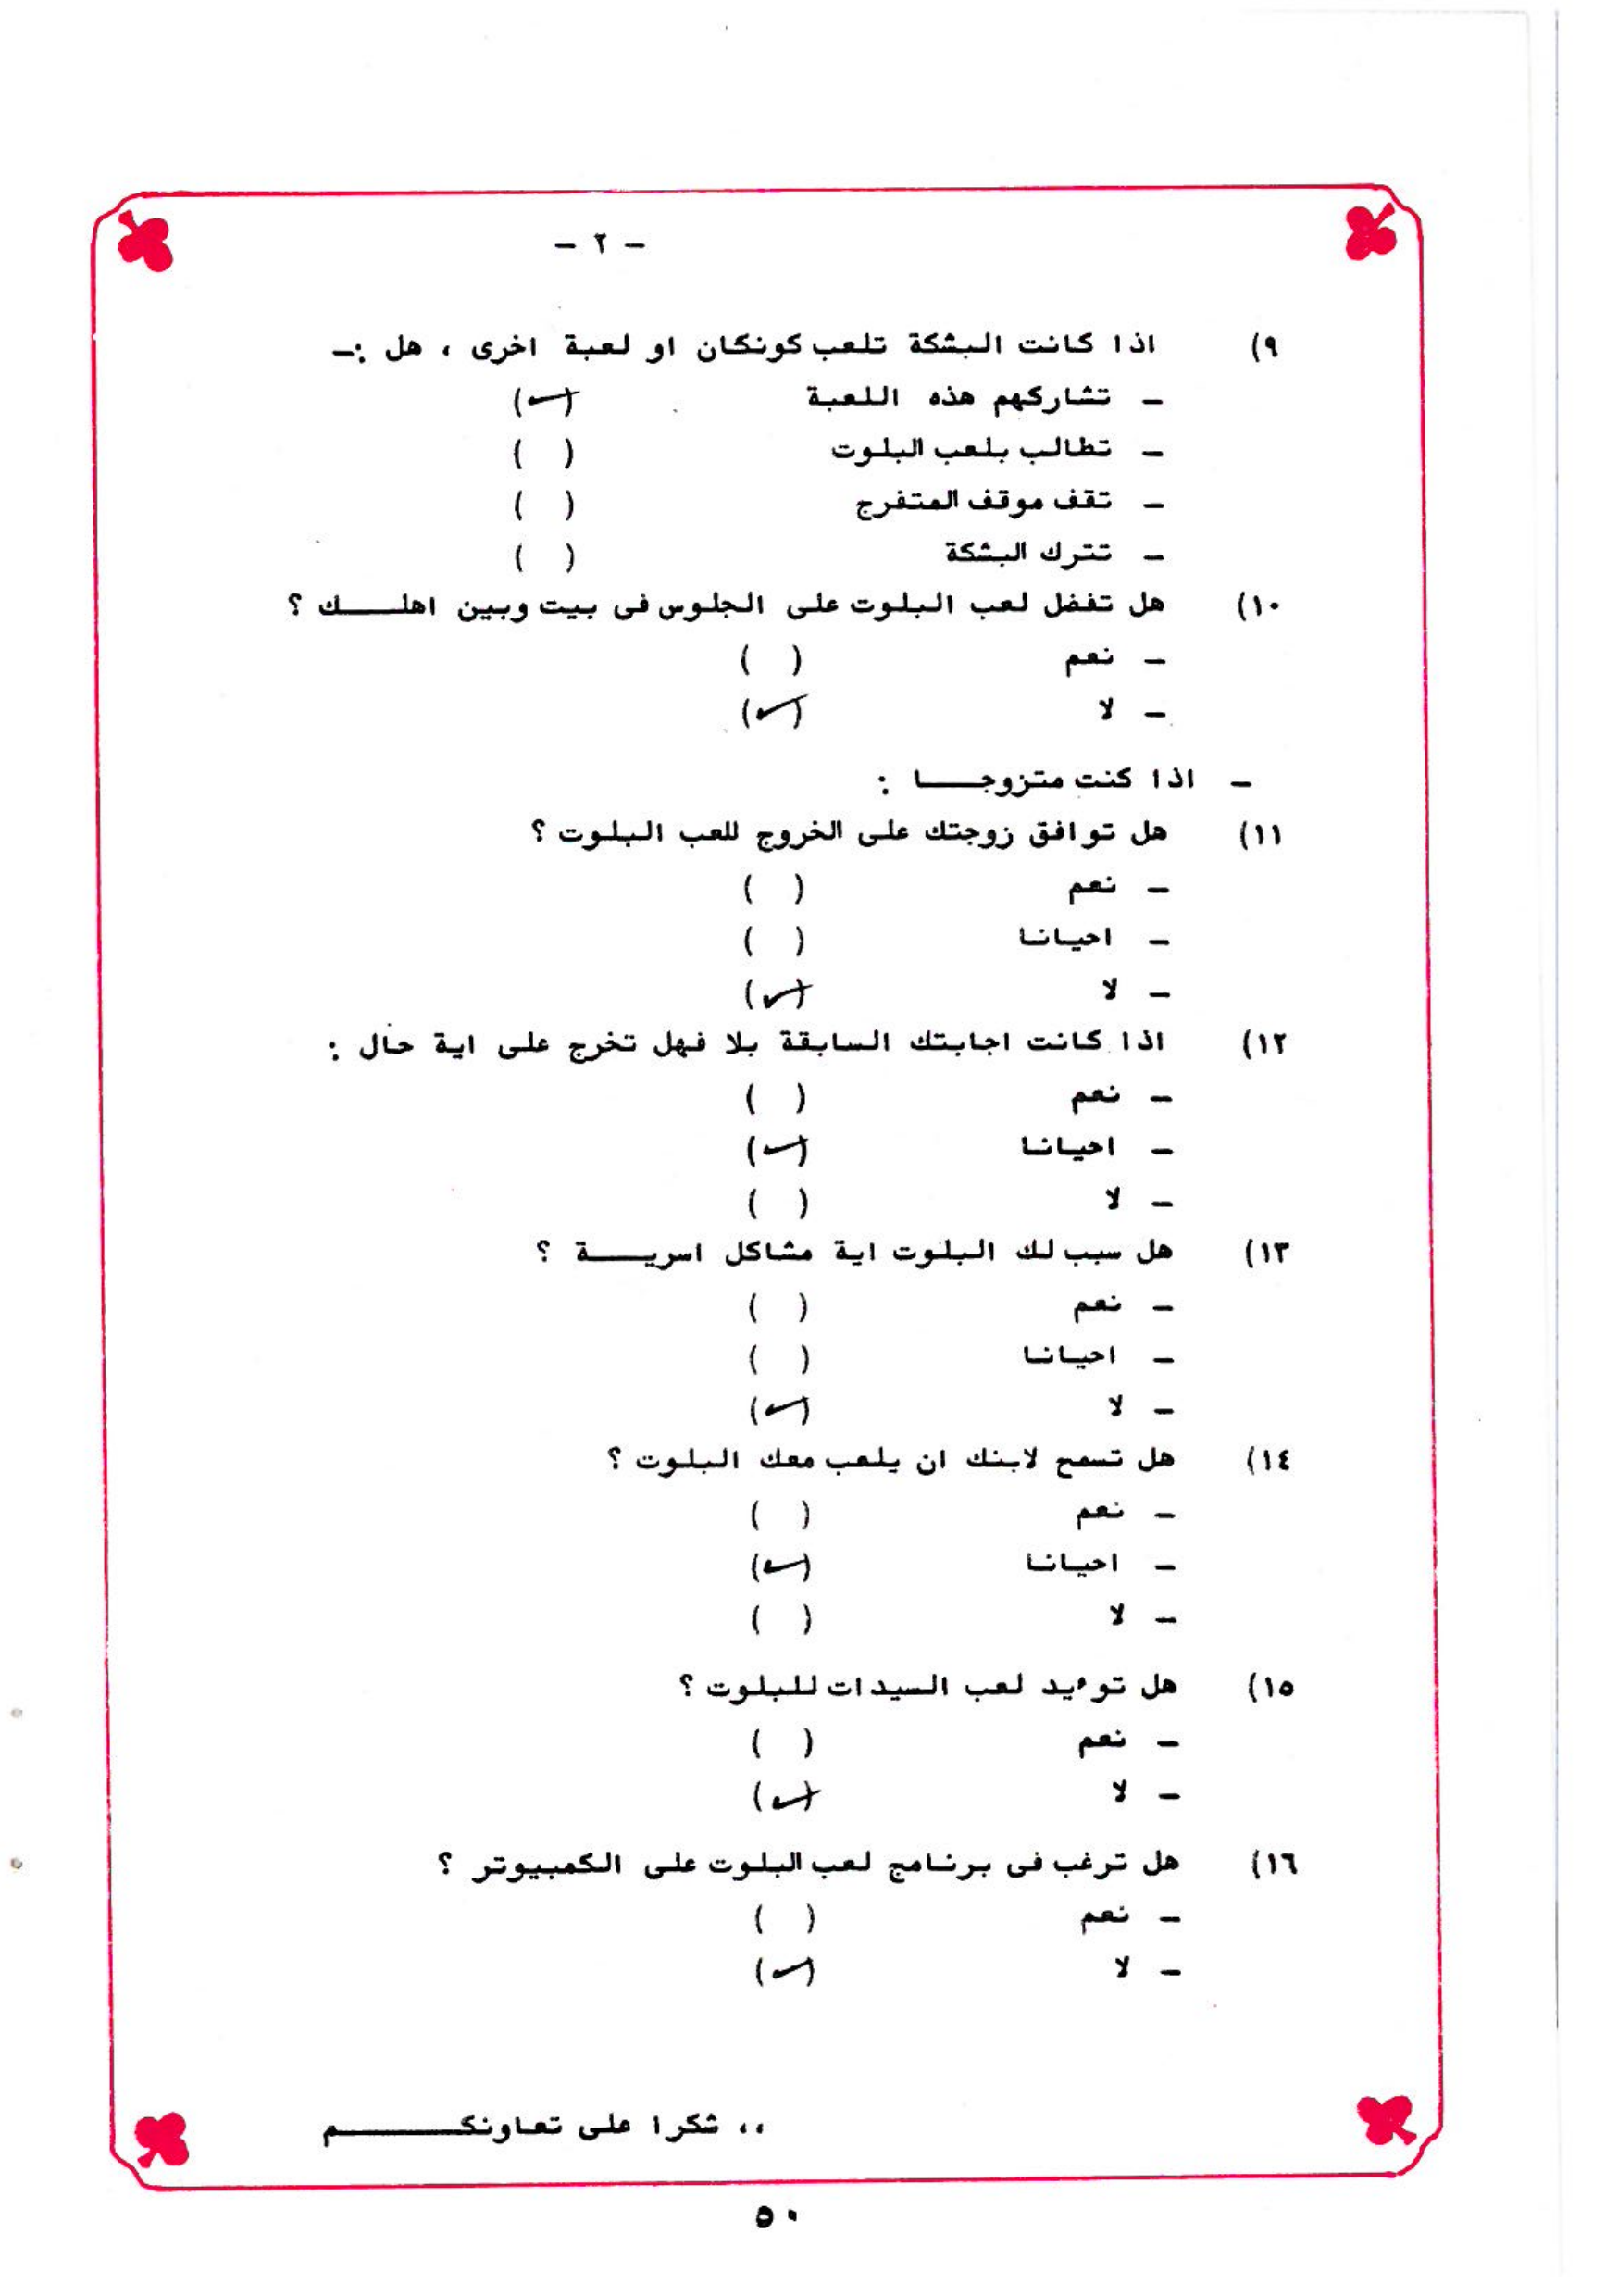 - ٢ -
٩) اذا كانت البشكة تلعب كونكان او لعبة اخرى ، هل :-
- تشاركهم هذه اللعبة (✓)
- تطالب بلعب البلوت ( )
- تقف موقف المتفرج ( )
- تترك البشكة ( )
١٠) هل تفضل لعب البلوت على الجلوس فى بيت وبين اهلـــك ؟
- نعم ( )
- لا (✓)
- اذا كنت متزوجـــا :
١١) هل توافق زوجتك على الخروج للعب البلوت ؟
- نعم ( )
- احيانا ( )
- لا (✓)
١٢) اذا كانت اجابتك السابقة بلا فهل تخرج على اية حال :
- نعم ( )
- احيانا (✓)
- لا ( )
١٣) هل سبب لك البلوت اية مشاكل اسريـــة ؟
- نعم ( )
- احيانا ( )
- لا (✓)
١٤) هل تسمح لابنك ان يلعب معك البلوت ؟
- نعم ( )
- احيانا (✓)
- لا ( )
١٥) هل توءيد لعب السيدات للبلوت ؟
- نعم ( )
- لا (✓)
١٦) هل ترغب فى برنامج لعب البلوت على الكمبيوتر ؟
- نعم ( )
- لا (✓)
،، شكرا على تعاونكـــــم
٥٠